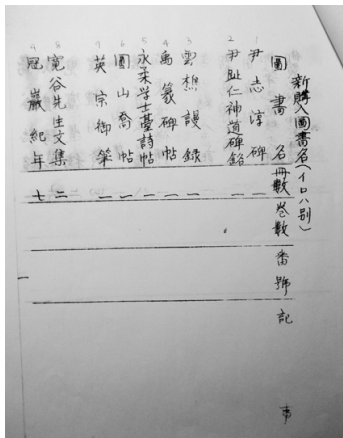 新購入圖書名(イロハ別)
圖書名 冊數 巻數 番號 記事
1 尹志淳碑 一
2 尹趾仁神道碑銘 一
3 雲樵謾録 一
4 禹篆碑帖 一
5 永柔学士臺詩帖 一
6 圓山喬帖 一
7 英宗御築 一
8 寛谷先生文集 二
9 冠巖紀年 七